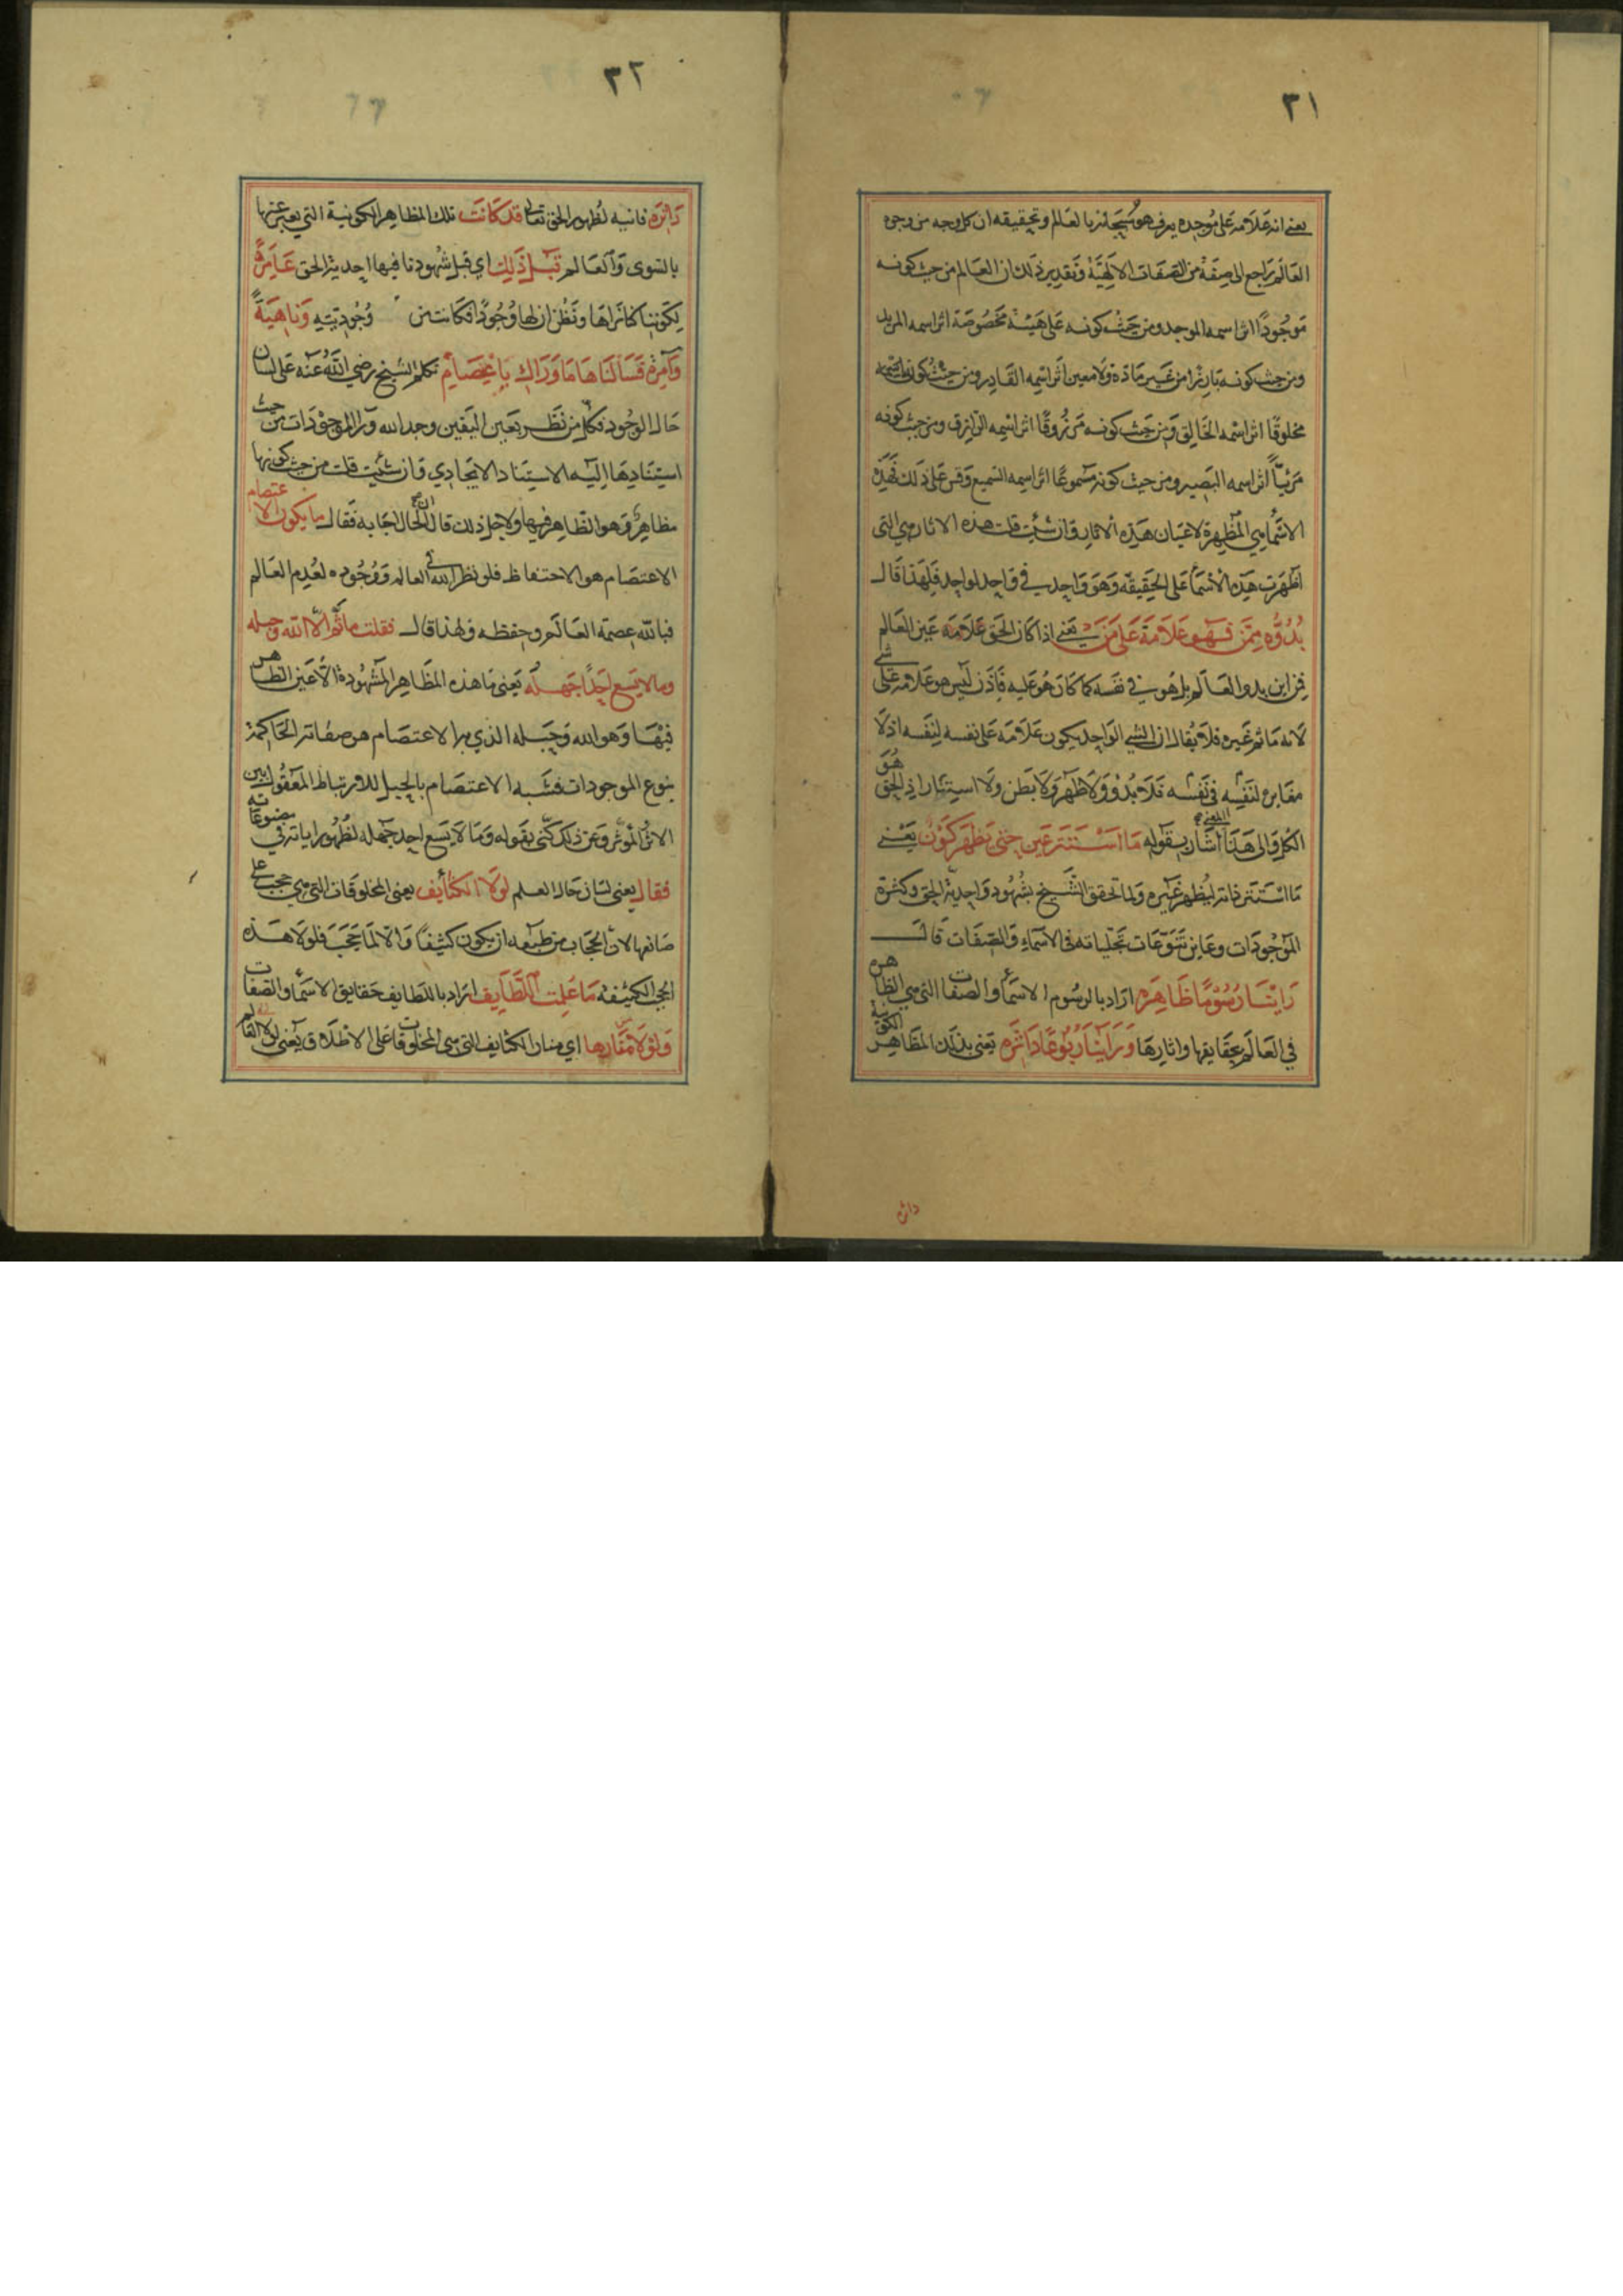 ٣١
يعني انه علامة على موجده يعرف هو سبحانه بالعالم وتحقيقه ان كل وجه من وجوه
العالم راجع الى صفة من الصفات الالهية وتقدير ذلك ان العالم من حيث كونه
موجودًا اثر اسمه الموجد ومن حيث كونه على هيئة مخصوصة اثر اسمه المريد
ومن حيث كونه بارزا من غير مادة ولا معين اثر اسمه القادر ومن حيث كونه
مخلوقًا اثر اسمه الخالق ومن حيث كونه مرزوقًا اثر اسمه الرازق ومن حيث كونه
مرئيًا اثر اسمه البصير ومن حيث كونه مسموعًا اثر اسمه السميع وقس على ذلك فهذه
الاسما هي المظهرة لاعيان هذه الاثار وان شئت قلت هذه الاثار هي التي
اظهرت هذه الاسما على الحقيقة وهو واحد في واحد لواحد فلهذا قال
بدوه ممن فهو علامة على من يعني اذا كان الحق علامة عين العالم
فمن اين بدو العالم بل هو في نفسه كما كان هو عليه فاذن ليس هو علامة على شي
لانه ما ثم غيره فلا يقال ان الشي الواحد يكون علامة على نفسه لنفسه اذ لا
مغايرة لنفسه في نفسه فلا بدو ولا ظهر ولا بطن ولا استتار اذ الحق هو
الكل والى هذا المعنى اشار بقوله ما استتر عين حتى تظهر كون يعني
ما استتر ذاته ليظهر غيره ولما تحقق الشيخ بشهود واحدية الحق وكثرة
الموجودات وعاين تنوعات تجلياته في الاسماء والصفات قال
راينا رسومًا ظاهره اراد بالرسوم الاسما والصفات التي هي الظاهره
في العالم بحقايقها واثارها وراينا ربوعًا داثره يعني بذلك المظاهر الكونية
داثره
٣٢
داثره فانيه لظهور الحق تعالى قد كانت تلك المظاهر الكونية التي يعبر عنها
بالسوى والعالم قبل ذلك اي قبل شهودنا فيها احدية الحق عامرةً
لكوننا كنا نراها ونظن ان لها وجودًا فكانت من وجوديته وناهيةً
وآمرة فسالناها ما وراك يا عصام تكلم الشيخ رضي الله عنه على لسان
حال الوجود فكل من نظر بعين اليقين وجد الله ورا الموجودات من حيث
استنادها اليه الاستناد الايجادي وان شئت قلت من حيث كونها
مظاهره وهو الظاهر فيها ولاجل ذلك قال ان الحال اجابه فقال ما يكون الاعتصام
الاعتصام هو الاحتفاظ فلو نظر الله الى العالم ووجوده لعدم العالم
فبالله عصمة العالم وحفظه ولهذا قال فقلت ما ثم الا الله وحبله
وما لا يسع احدًا جهله يعني ما هذه المظاهر المشهودة الا عين الظاهر
فيها وهو الله وحبله الذي به الاعتصام هو صفاته الحاكمة
بنوع الموجودات فشبه الاعتصام بالحبل للارتباط المعقول بين
الاثر والمؤثر وعن ذلك كنى بقوله وما لا يسع احد جهله لظهور اياته في مصنوعاته
فقال يعني لسان حال العلم لولا الكثايف يعني المخلوقات التي هي حجب على
صانعها لان الحجاب من طبعه ان يكون كثيفًا والا لما حجب فلولا هذه
الحجب الكثيفه ما علمت اللطايف اراد باللطايف حقايق الاسما والصفات
ولولا اثارها اي منار الكثايف التي هي المخلوقات على الاطلاق يعني لولا العالم